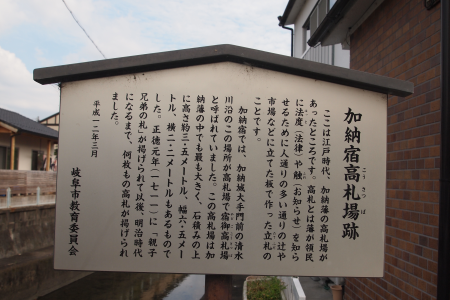 加納宿高札場跡
こうさつば
ここは江戸時代、加納藩の高札場が
あったところです。高札とは藩が領民
に法度（法律）や触（お知らせ）を知ら
せるために人通りの多い通りの辻や
市場などに立てた板で作った立札の
ことです。
加納宿では、加納城大手門前の清水
川沿のこの場所が高札場で宿御高札場
と呼ばれていました。この高札場は加
納藩の中でも最も大きく、石積みの上
に高さ約三・五メートル、幅六・五メー
トル、横二・二メートルもあるもので
した。正徳元年（一七一一）に「親子
兄弟の札」が掲げられて以後、明治時代
になるまで、何枚もの高札が掲げられ
ました。
平成一二年三月
岐阜市教育委員会